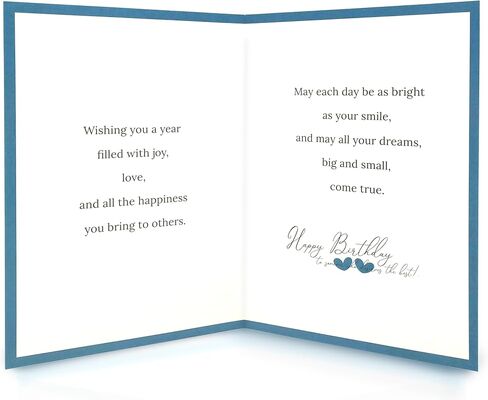 Wishing you a year
filled with joy,
love,
and all the happiness
you bring to others.
May each day be as bright
as your smile,
and may all your dreams,
big and small,
come true.
Happy Birthday
to the best!